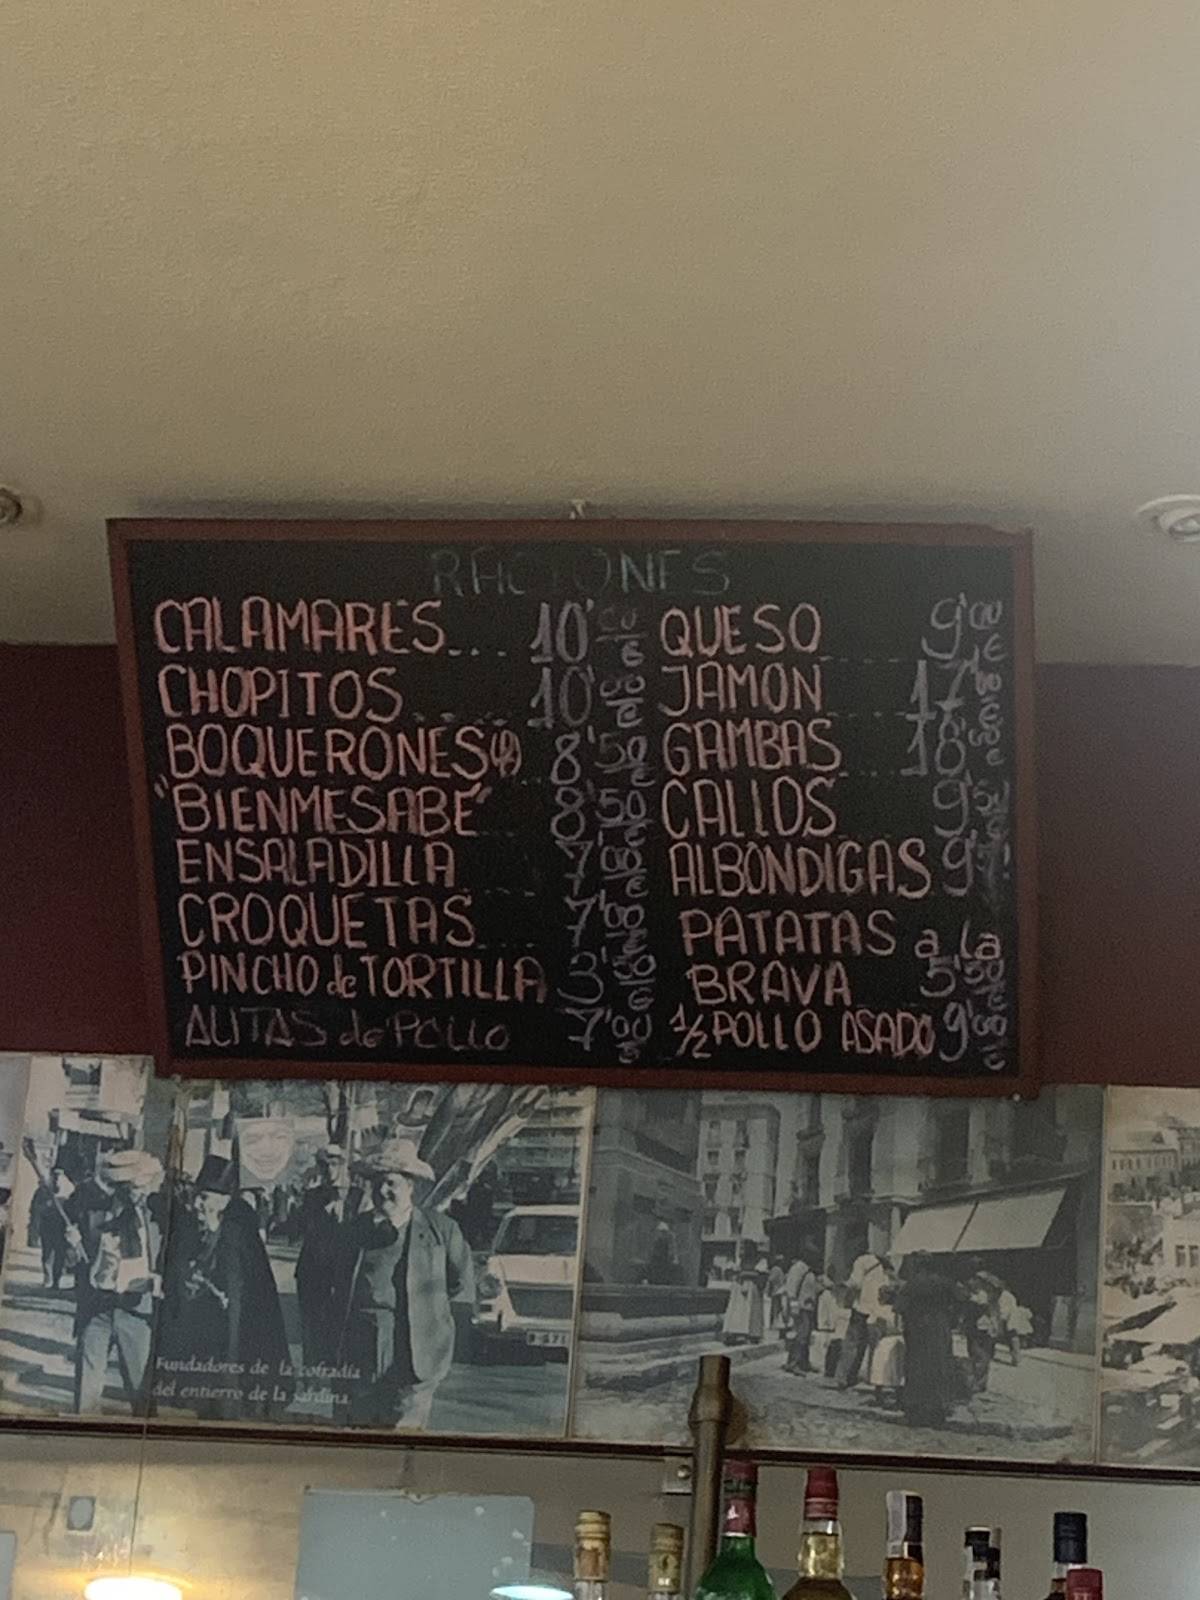 RACIONES
CALAMARES.... 10'00 €
CHOPITOS ..... 10'00 €
BOQUERONES 8'50 €
"BIENMESABE" 8'50 €
ENSALADILLA .... 7'00 €
CROQUETAS .... 7'00 €
PINCHO de TORTILLA 3'
ALITAS de POLLO 7'00 €
QUESO ..... 9'00 €
JAMON ..... 17'00 €
GAMBAS .... 18' €
CALLOS .... 9'50 €
ALBÓNDIGAS
PATATAS a la
BRAVA 5'50 €
1/2 POLLO ASADO 9'00 €
Fundadores de la cofradía
del entierro de la sardina.